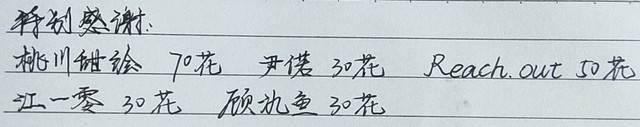 特别感谢:
桃川甜绘 70花 尹偌 30花 Reach.out 50花
江一零 30花 顾执鱼 30花